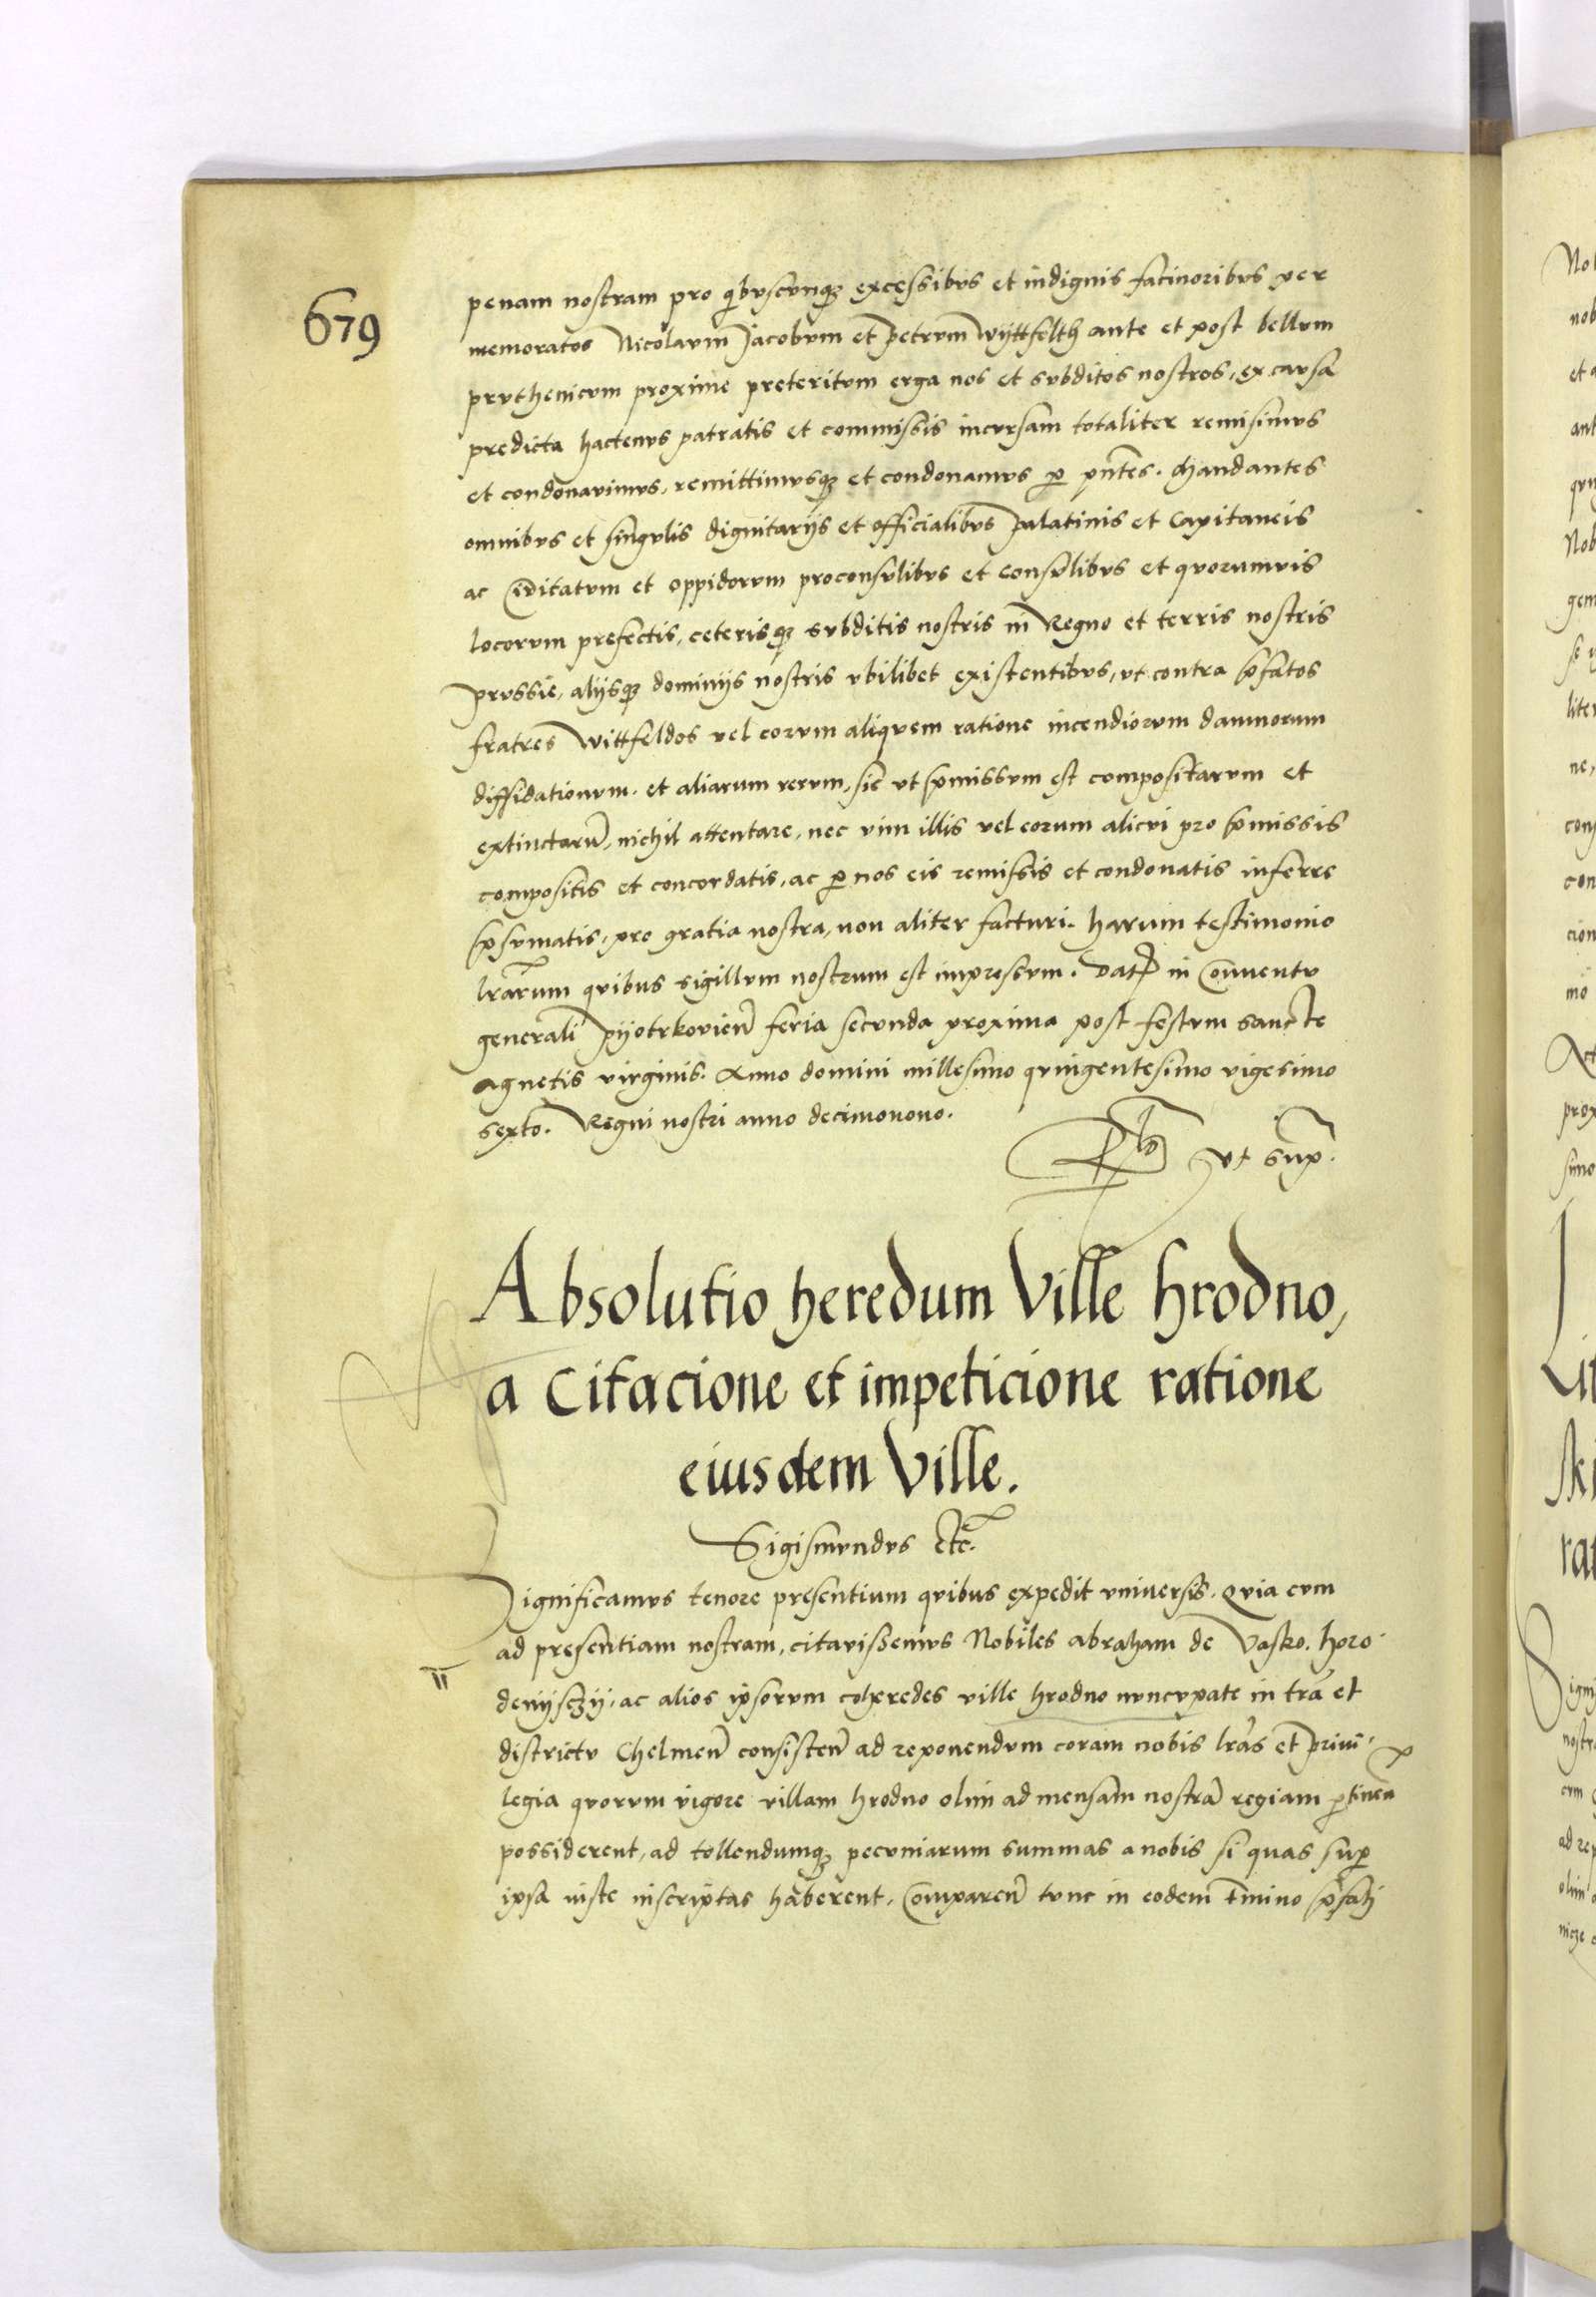 679
penam nostram pro qͥbvscvnqꝫ excessibvs et indignis facinoribvs per
memoratos Nicolavm Jacobvm et petrvm wyttfelth ante et post bellvm
prvthenicvm proxime preteritvm erga nos et svbditos nostros, ex cavsa
predicta hactenvs patratis et commissis incvrsam totaliter remisimvs
et condonavimvs, remittimvsqꝫ et condonamvs ꝑ pn̄tes. Mandantes
omnibvs et singvlis dignitarijs et officialibvs palatinis et Capitaneis
ac Civitatvm et oppidorvm proconsvlibvs et consvlibvs et qvorumvis
locorvm prefectis, ceterisqꝫ svbditis nostris in Regno et terris nostris
prvssie, alijsqꝫ dominijs nostris vbilibet existentibvs, vt contra p̄fatos
fratres wittfeldos vel eorvm aliqvem ratione incendiorvm damnorum
diffidationvm. et aliarum rervm, sic vt p̄missvm est compositarvm et
extinctarū, nichil attentare, nec vim illis vel eorum alicvi pro p̄missis
compositis et concordatis, ac ꝑ nos eis remissis et condonatis inferre
p̄svmatis, pro gratia nostra, non aliter factvri. harum testimonio
lr̄arum qvibus sigillvm nostrum est impressvm. Dat̄ in Conventv
generali pyotrkovien̄ feria secvnda proxima post festvm sancte
Agnetis virginis. Anno domini millesimo qvingentesimo vigesimo
sexto. Regni nostri anno decimonono.
vt sup̄.
Absolutio heredum Ville hrodno,
a Citacione et impeticione ratione
eiusdem Ville.
Sigismvndvs etc̄.
Significamvs tenore presentium qvibus expedit vniversis. Qvia cvm
ad presentiam nostram, citavissemvs Nobiles abraham de Vasko. horo
denijsczij, ac alios ipsorvm coheredes ville hrodno nvncvpate in tr̄a et
districtv Chelmen̄ consisten̄ ad reponendvm coram nobis lr̄as et privi
legia qvorvm vigore villam hrodno olim ad mensam nostrā regiam ꝑtinen̄
possiderent, ad tollendumqꝫ pecvniarum summas a nobis si quas suꝑ
ipsa iuste inscriptas haberent. Comparen̄ tvnc in eodem t̄mino p̄fatj